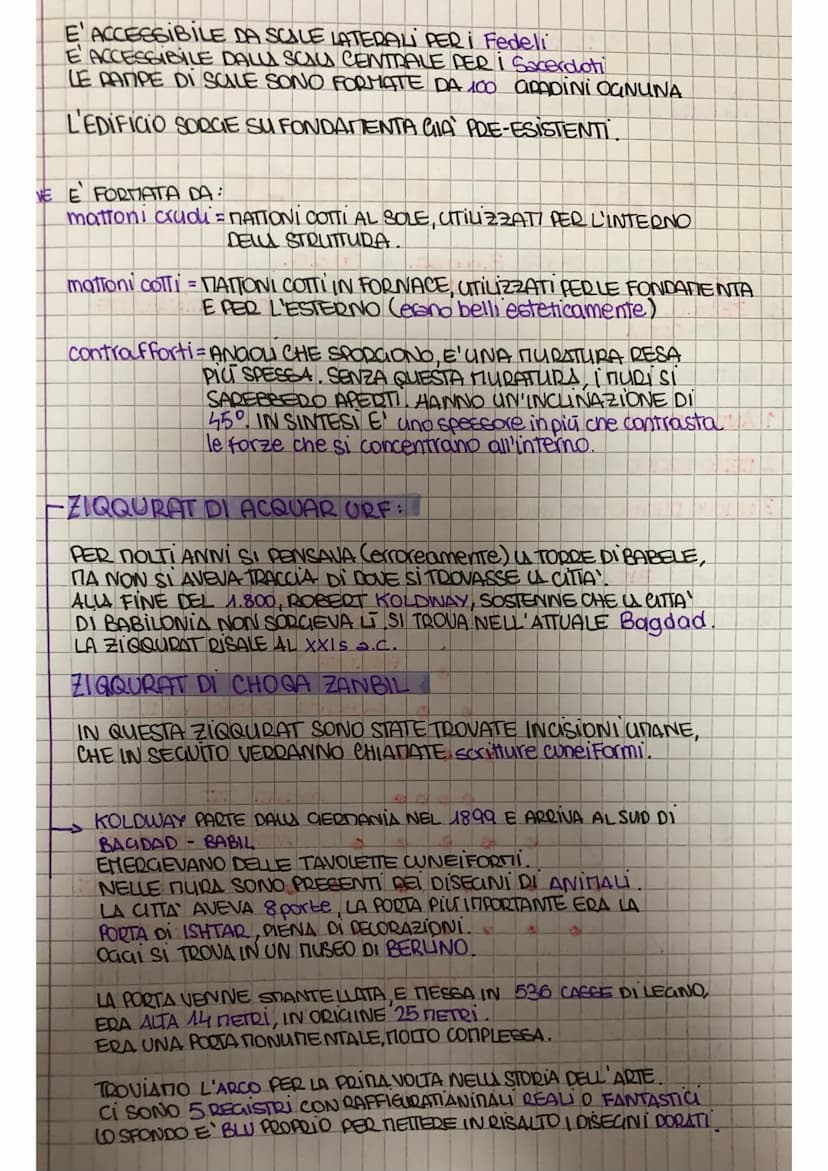 E' ACCESSIBILE DA SCALE LATERALI PER i Fedeli
E' ACCESSIBILE DALLA SCALA CENTRALE PER i Sacerdoti
LE RAMPE DI SCALE SONO FORMATE DA 100 GRADINI OGNUNA
L'EDIFICIO SORGE SU FONDAMENTA GIA' PRE-ESISTENTI.
NE E' FORMATA DA:
mattoni crudi = MATTONI COTTI AL SOLE, UTILIZZATI PER L'INTERNO
DELLA STRUTTURA.
mattoni cotti = MATTONI COTTI IN FORNACE, UTILIZZATI PER LE FONDAMENTA
E PER L'ESTERNO (erano belli esteticamente)
contrafforti = ANGOLI CHE SPORGONO, E' UNA MURATURA RESA
PIÙ SPESSA. SENZA QUESTA MURATURA, i MURI SI
SAREBBERO APERTI. HANNO UN'INCLINAZIONE DI
45°. IN SINTESI E' uno spessore in più che contrasta
le forze che si concentrano all'interno.
ZIQQURAT DI ACQUAR URF:
PER MOLTI ANNI SI PENSAVA (erroreamente) LA TORRE DI BABELE,
MA NON SI AVEVA TRACCIA DI DOVE SI TROVASSE LA CITTA'.
ALLA FINE DEL 1.800, ROBERT KOLDWAY, SOSTENNE CHE LA CITTA'
DI BABILONIA NON SORGEVA LÌ. SI TROVA NELL'ATTUALE Bagdad.
LA ZIQQURAT RISALE AL XXIs a.C.
ZIQQURAT DI CHOQA ZANBIL
IN QUESTA ZIQQURAT SONO STATE TROVATE INCISIONI UMANE,
CHE IN SEGUITO VERRANNO CHIAMATE scritture cuneiformi.
KOLDWAY PARTE DALLA GERMANIA NEL 1899 E ARRIVA AL SUD DI
BAGDAD - BABIL
EMERGEVANO DELLE TAVOLETTE CUNEIFORMI.
NELLE MURA SONO PRESENTI DEI DISEGNI DI ANIMALI.
LA CITTA' AVEVA 8 porte, LA PORTA PIÙ IMPORTANTE ERA LA
PORTA DI ISHTAR, PIENA DI DECORAZIONI.
OGGI SI TROVA IN UN MUSEO DI BERLINO.
LA PORTA VENNE SMANTELLATA, E MESSA IN 536 CASSE DI LEGNO,
ERA ALTA 14 METRI, IN ORIGINE 25 METRI.
ERA UNA PORTA MONUMENTALE, MOLTO COMPLESSA.
TROVIAMO L'ARCO PER LA PRIMA VOLTA NELLA STORIA DELL'ARTE.
CI SONO 5 REGISTRI CON RAFFIGURATI ANIMALI REALI O FANTASTICI
LO SFONDO E' BLU PROPRIO PER METTERE IN RISALTO I DISEGNI DORATI.